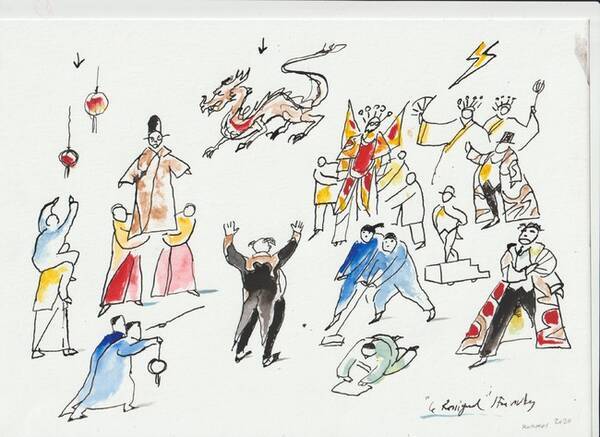 "Le Rossignol" Stravinsky
2020